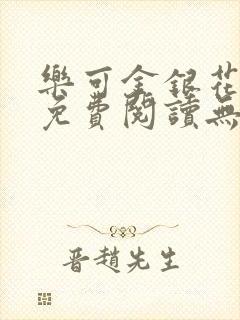 樂可金銀花
免費閱讀無
晋趙先生